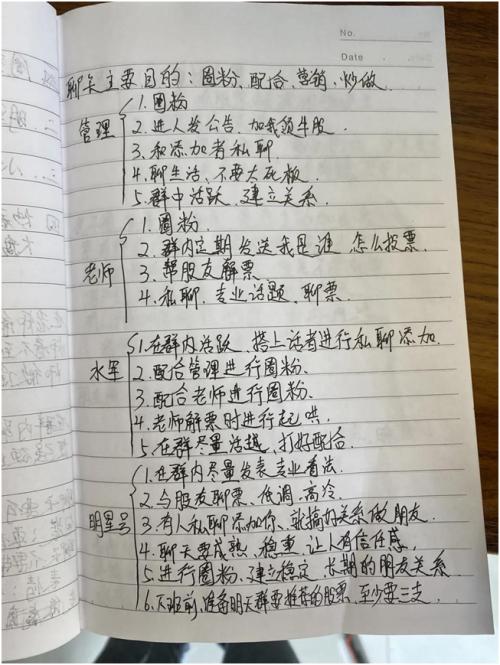 No.
Date
聊天主要目的：圈粉、配合、营销、炒做
管理
1.圈粉
2.进人发公告、加我领牛股.
3.和添加者私聊.
4.聊生活、不要太死板
5.群中活跃、建立关系.
老师
1.圈粉.
2.群内定期发送我是谁 怎么投票.
3.帮股友解票
4.私聊、专业话题、聊票.
水军
1.在群内活跃、搭上话者进行私聊添加.
2.配合管理进行圈粉、
3.配合老师进行圈粉.
4.老师解票时进行起哄.
5.在群尽量活越、打好配合.
明星号
1.在群内尽量发表专业看法.
2.与股友聊票、低调、高冷.
3.有人私聊添加你、就搞好关系做朋友.
4.聊天要成熟、稳重、让人有信任感.
5.进行圈粉、建立稳定、长期的朋友关系.
6.下班前,准备明天群要推荐的股票,至少要三支.